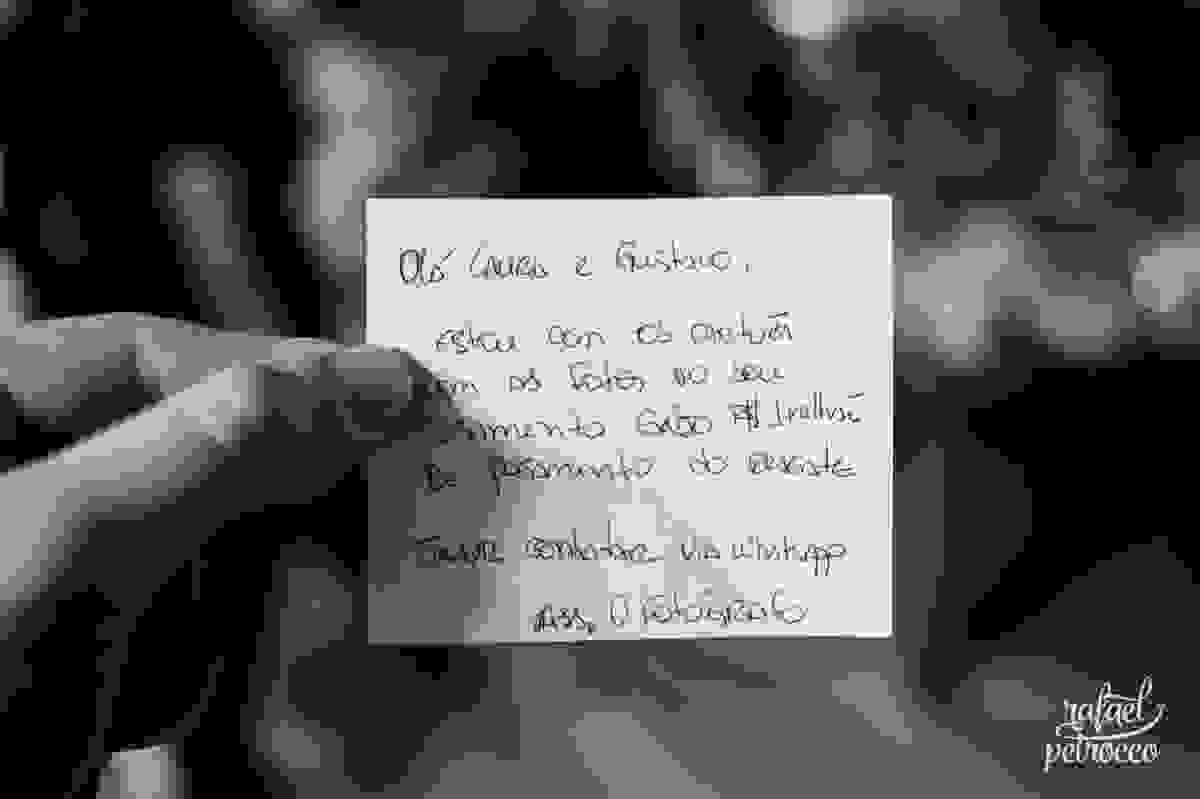 Olá Laura e Gustavo,
Estou com os cartões
com as fotos do seu
casamento Exijo R$ 1 milhão
de pagamento do resgate
Favor contatar via whatsapp
Ass, O Fotógrafo
rafael
petrocco